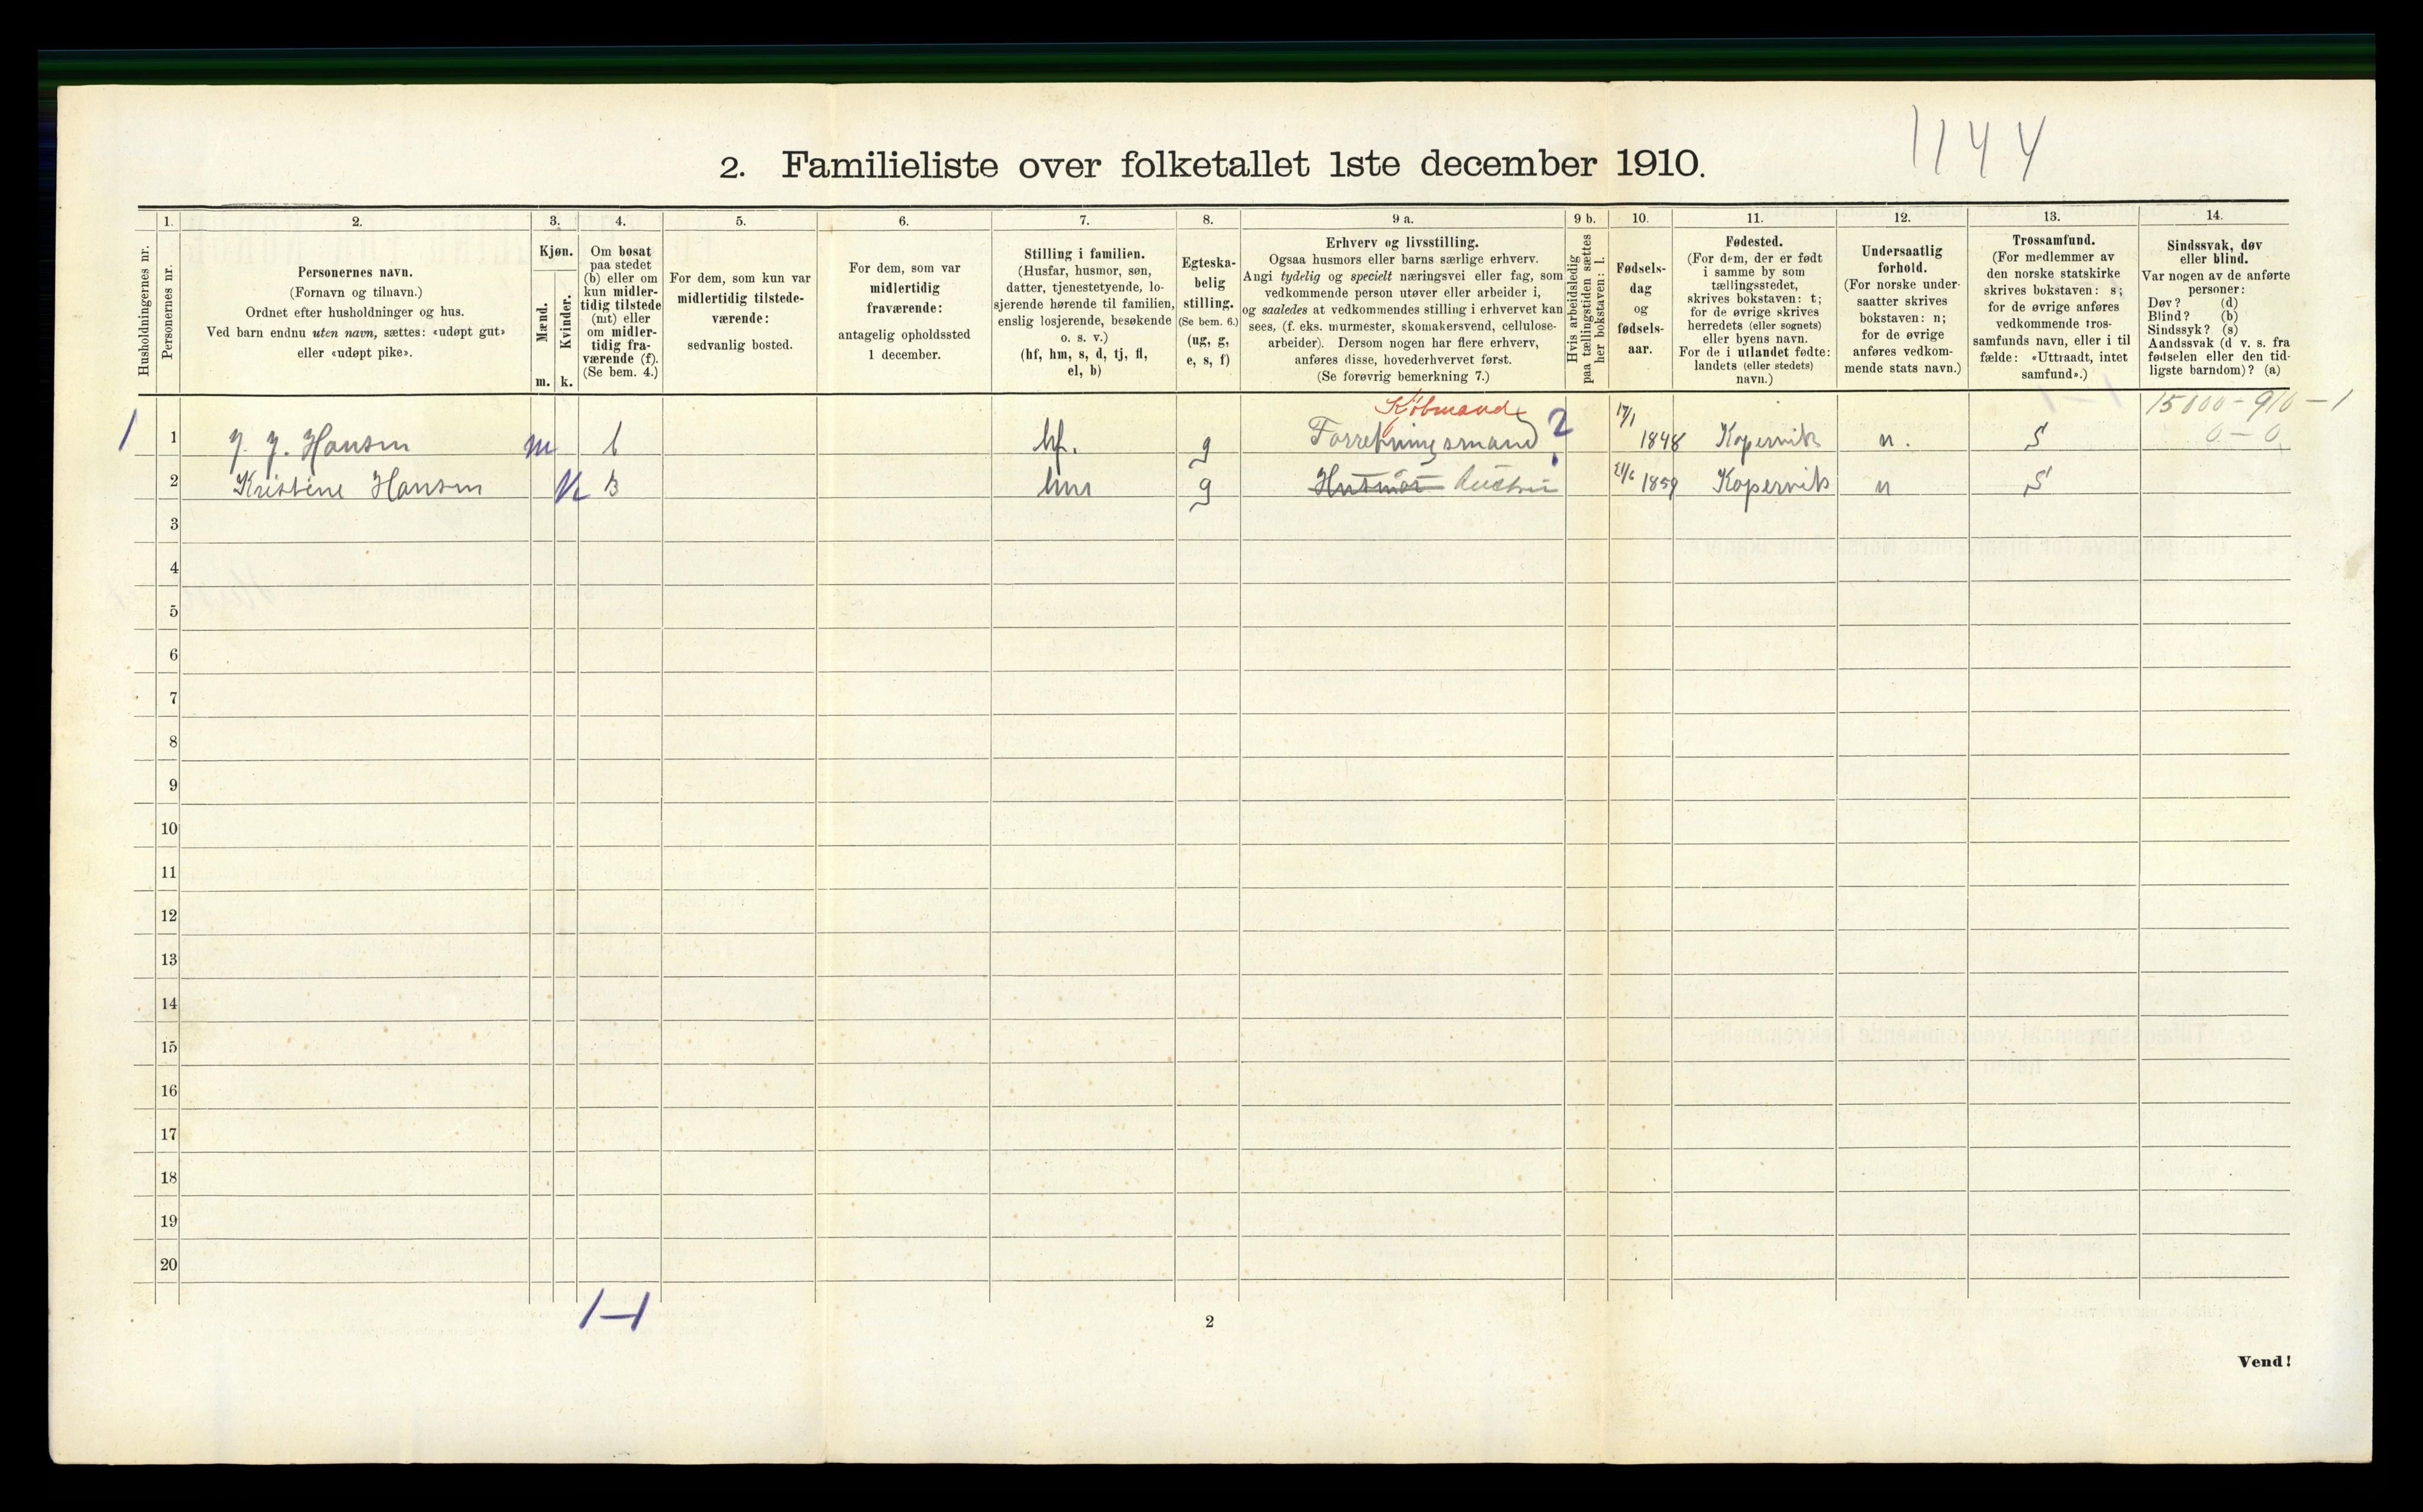 1144
2. Familieliste over folketallet 1ste december 1910.
1. 2. 3. 4. 5. 6. 7. 8. 9 a. 9 b. 10. 11. 12. 13. 14.
Husholdningernes nr.
Personernes nr.
Personernes navn.
(Fornavn og tilnavn.)
Ordnet efter husholdninger og hus.
Ved barn endnu uten navn, sættes: «udøpt gut»
eller «udøpt pike».
Kjøn.
Mænd.
Kvinder.
m. k.
Om bosat
paa stedet
(b) eller om
kun midler-
tidig tilstede
(mt) eller
om midler-
tidig fra-
værende (f).
(Se bem. 4.)
For dem, som kun var
midlertidig tilstede-
værende:
sedvanlig bosted.
For dem, som var
midlertidig
fraværende:
antagelig opholdssted
1 december.
Stilling i familien.
(Husfar, husmor, søn,
datter, tjenestetyende, lo-
sjerende hørende til familien,
enslig losjerende, besøkende
o. s. v.)
(hf, hm, s, d, tj, fl,
el, b)
Egteska-
belig
stilling.
(Se bem. 6.)
(ug, g,
e, s, f)
Erhverv og livsstilling.
Ogsaa husmors eller barns særlige erhverv.
Angi tydelig og specielt næringsvei eller fag, som
vedkommende person utøver eller arbeider i,
og saaledes at vedkommendes stilling i erhvervet kan
sees, (f. eks. murmester, skomakersvend, cellulose-
arbeider). Dersom nogen har flere erhverv,
anføres disse, hovederhvervet først.
(Se forøvrig bemerkning 7.)
Hvis arbeidsledig
paa tællingstiden sættes
her bokstaven: l.
Fødsels-
dag
og
fødsels-
aar.
Fødested.
(For dem, der er født
i samme by som
tællingsstedet,
skrives bokstaven: t;
for de øvrige skrives
herredets (eller sognets)
eller byens navn.
For de i utlandet fødte:
landets (eller stedets)
navn.)
Undersaatlig
forhold.
(For norske under-
saatter skrives
bokstaven: n;
for de øvrige
anføres vedkom-
mende stats navn.)
Trossamfund.
(For medlemmer av
den norske statskirke
skrives bokstaven: s;
for de øvrige anføres
vedkommende tros-
samfunds navn, eller i til
fælde: «Uttraadt, intet
samfund».)
Sindssvak, døv
eller blind.
Var nogen av de anførte
personer:
Døv? (d)
Blind? (b)
Sindssyk? (s)
Aandssvak (d v. s. fra
fødselen eller den tid-
ligste barndom)? (a)
Kjøbmand 15000 - 910 - 1
1 1 J. J. Hansen m b hf. g Forretningsmand ? 17/1 1848 Kopervik n. S 0 - 0
2 Kristine Hansen k B hm g Husmor Hustru 21/6 1859 Kopervik n S
3
4
5
6
7
8
9
10
11
12
13
14
15
16
17
18
19
20
1-1
2
Vend!